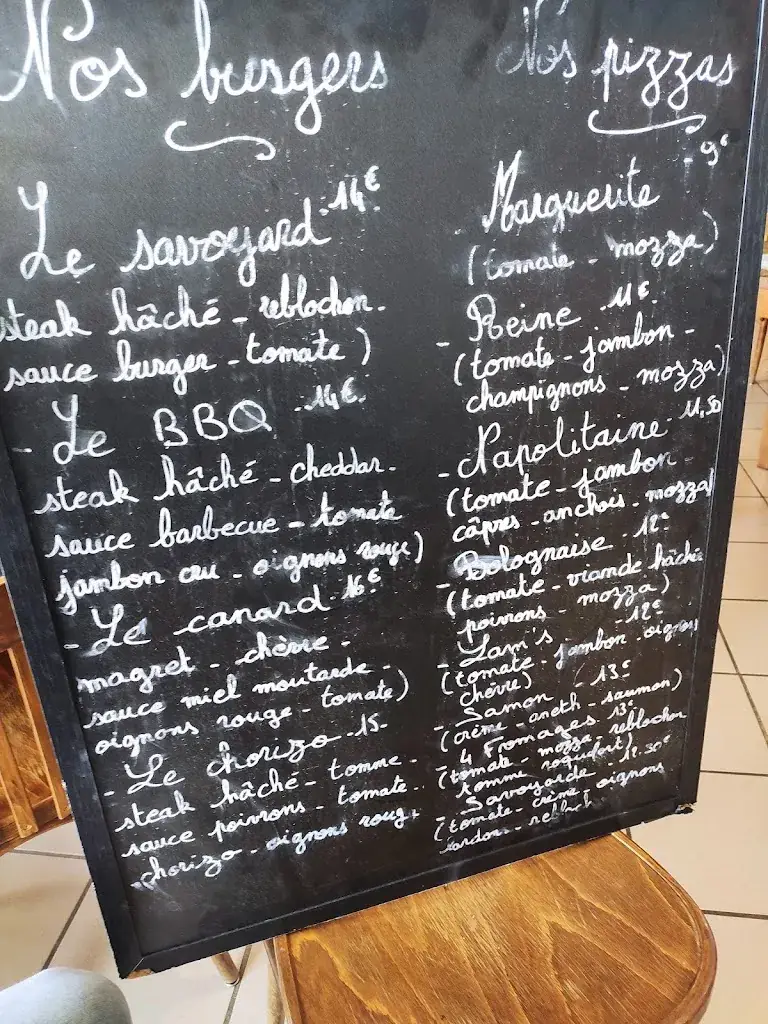 Nos burgers
Le savoyard - 14€
steak hâché - reblochon -
sauce burger - tomate )
- Le BBQ - 14€.
steak hâché - cheddar -
sauce barbecue - tomate
jambon cru - oignons rouge )
- Le canard - 16€
magret - chèvre -
sauce miel moutarde -
oignons rouge - tomate )
- Le chorizo - 15 -
steak hâché - tomme -
sauce poivrons - tomate -
chorizo - oignons roug
Nos pizzas
- 9€
- Marguerite
( tomate - mozza )
- Reine - 11€.
( tomate - jambon -
champignons - mozza )
- Napolitaine - 11,50
( tomate - jambon -
câpres - anchois - mozza )
- Bolognaise - 12€
( tomate - viande hâchée
poivrons - mozza )
- Sam's - 12€
( tomate - jambon - oignons
chèvre )
- Samon - 13€
( crème - aneth - saumon )
- 4 fromages 13€
( tomate - mozza - reblochon
tomme roquefort )
- Savoyarde - 12.50€
( tomate - crème - oignons
lardon - rebloch